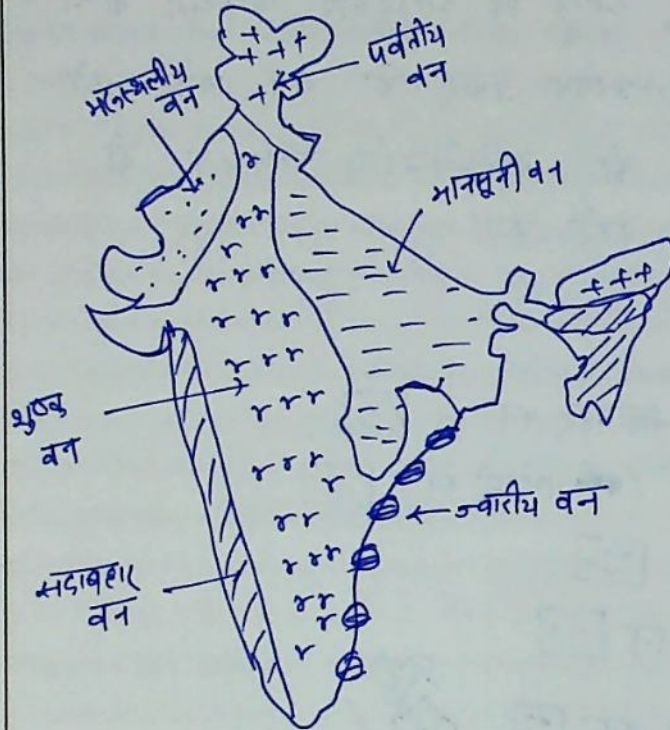 पर्वतीय
वन
मरुस्थलीय
वन
मानसूनी वन
शुष्क
वन
ज्वारीय वन
सदाबहार
वन